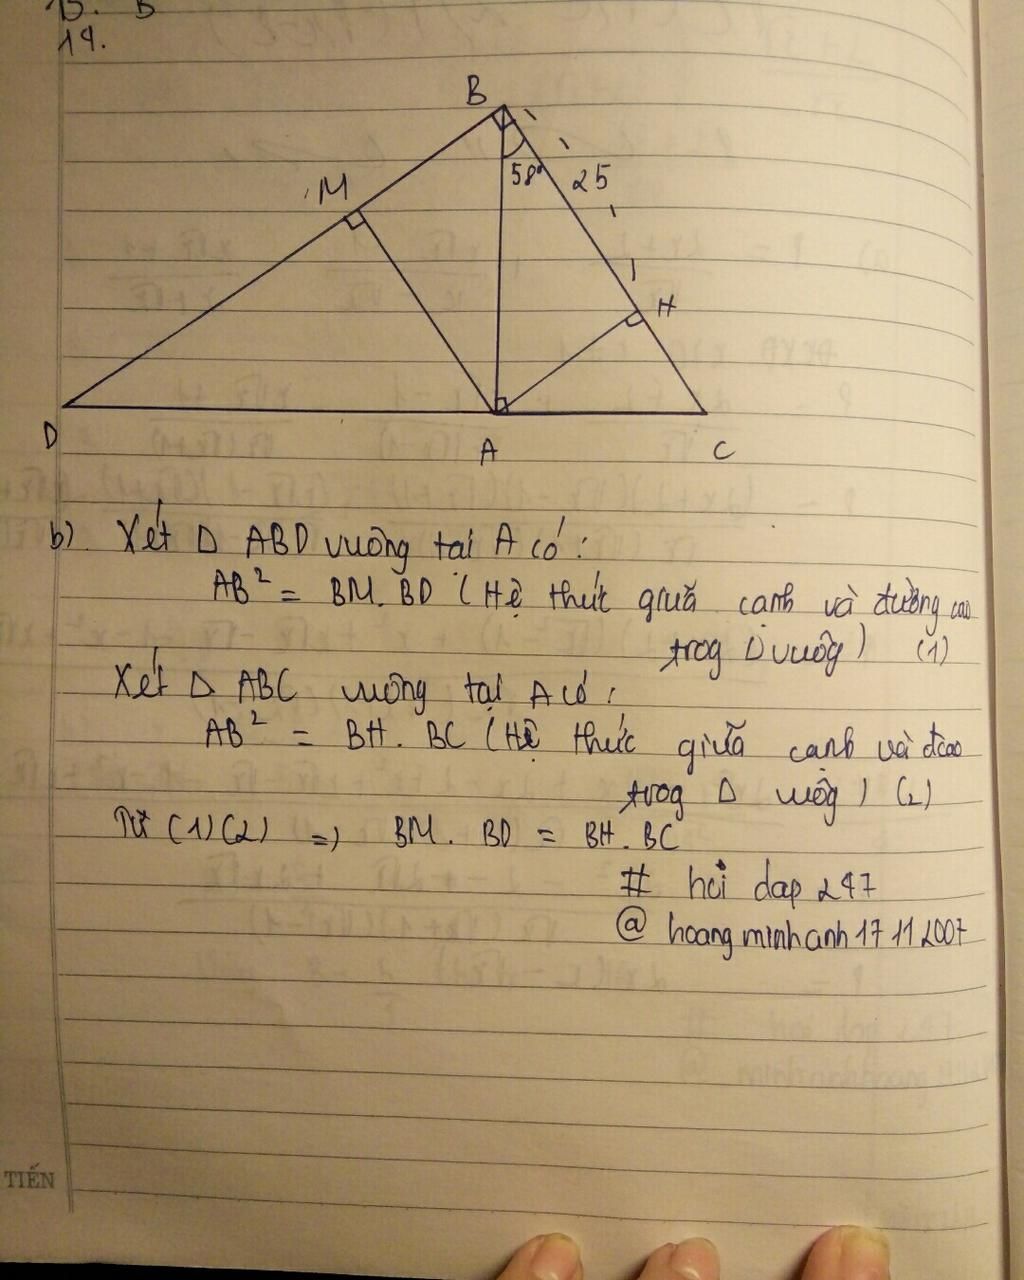 15. B
14.
B
58°
25
M
H
D
A
C
b) Xét Δ ABD vuông tại A có:
AB² = BM. BD (Hệ thức giữa cạnh và đường cao
trog Δ vuôg) (1)
Xét Δ ABC vuông tại A có:
AB² = BH. BC (Hệ thức giữa cạnh và đcao
trog Δ vuôg) (2)
Từ (1)(2) => BM. BD = BH. BC
# hỏi dap 247
@ hoangminhanh17112007
TIẾN